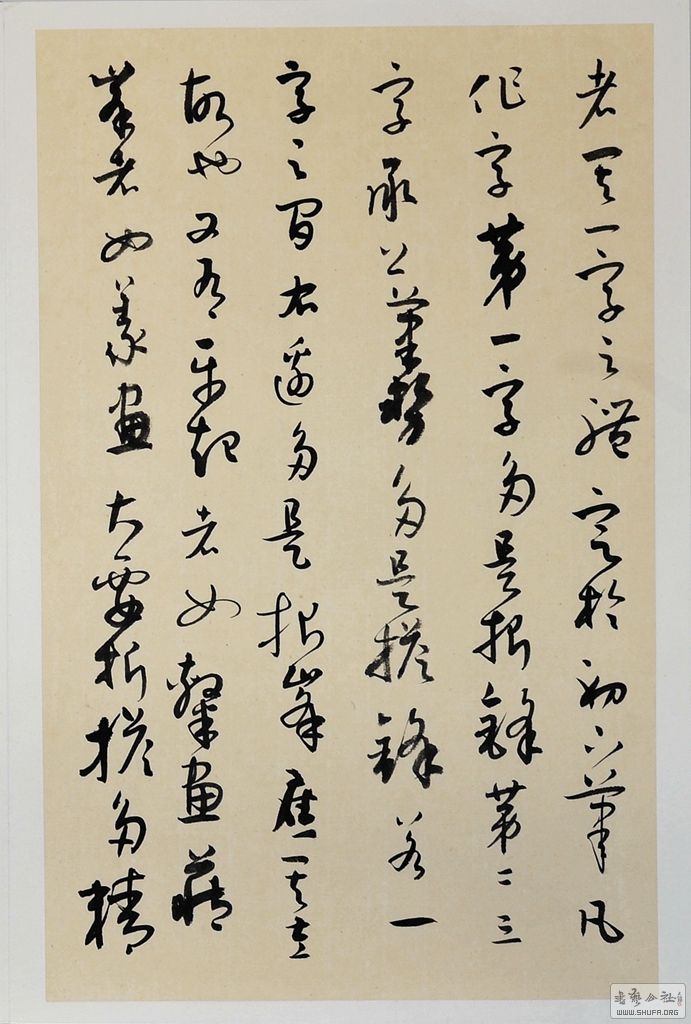 者其一字之體定於初下筆凡
作字第一字多是折鋒第二三
字承上筆勢多是搭鋒若一
字之間右邊多是折峯應其左
故也又有平起者如隸畫藏
峯者如篆畫大要折搭多精
書藝公社
WWW.SHUFA.ORG